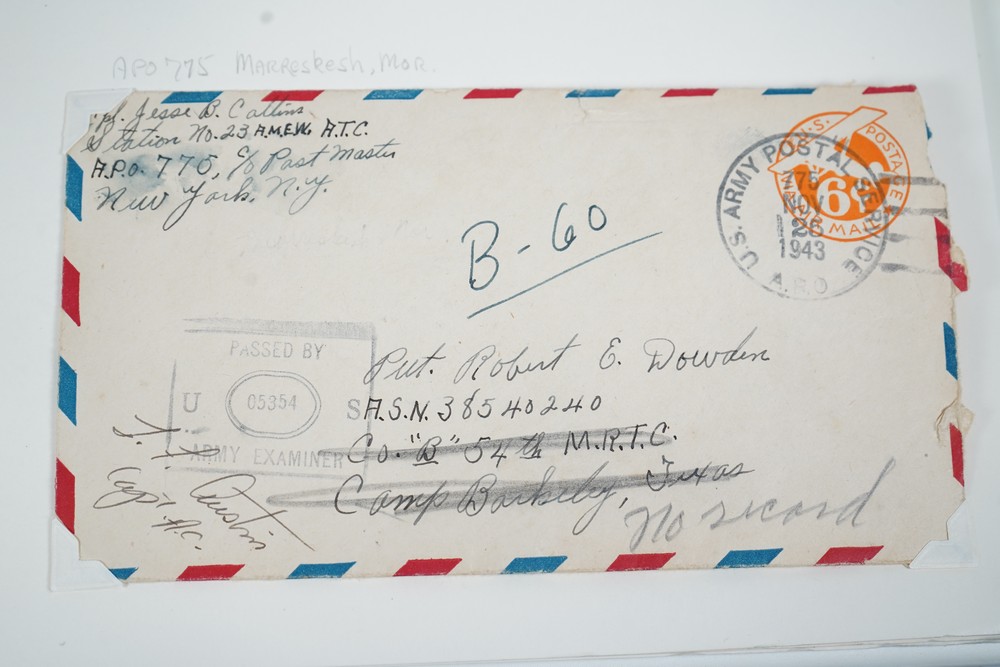 APO 775 Marreskesh, Mor.
Jesse B. Collins
Station No. 23 A.M.E.W. A.T.C.
A.P.O. 775, c/o Post Master
New York, N.Y.
B-60
U.S. POSTAGE
6¢
AIR MAIL
U.S. ARMY POSTAL SERVICE
775
NOV
26
1943
A.P.O.
PASSED BY
U. S.
05354
ARMY EXAMINER
Pvt. Robert E. Dowden
A.S.N. 38540240
Co. "B" 54th M.R.T.C.
Camp Barkeley, Texas
No record
Austin
Capt A.C.